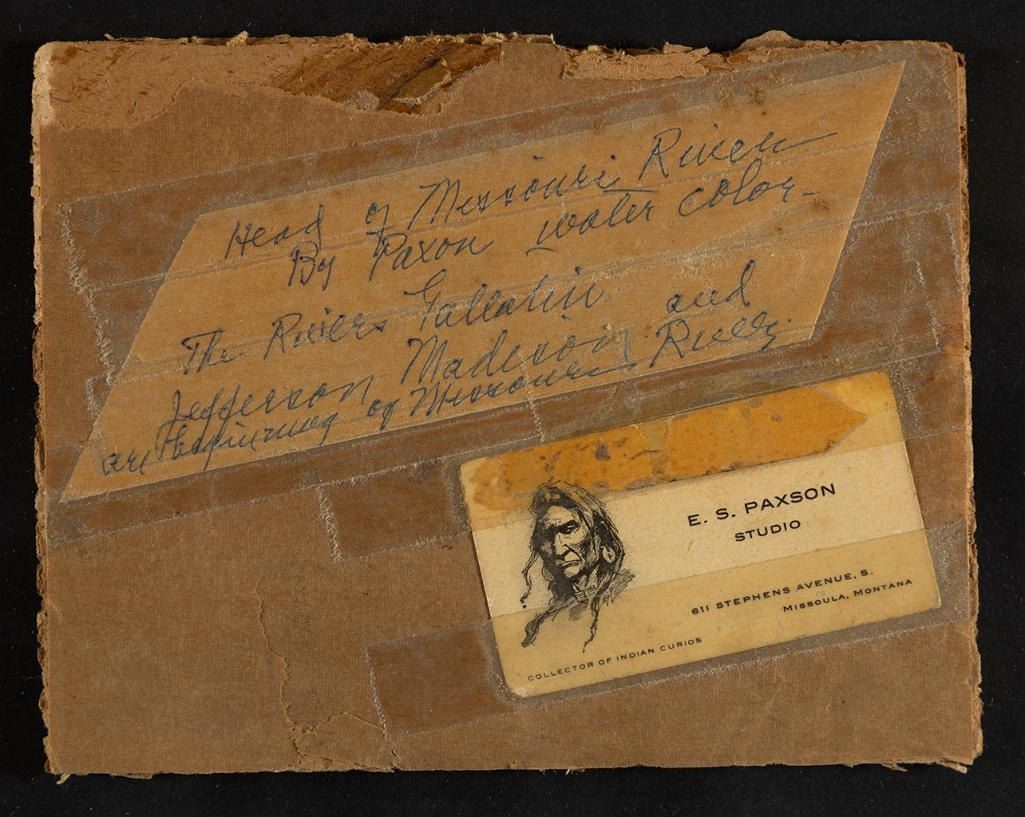 Head of Missouri River
By Paxon water color-
The Rivers Gallatin
Jefferson Madison and
are beginning of Missouri River
E. S. PAXSON
STUDIO
611 STEPHENS AVENUE, S.
MISSOULA, MONTANA
COLLECTOR OF INDIAN CURIOS